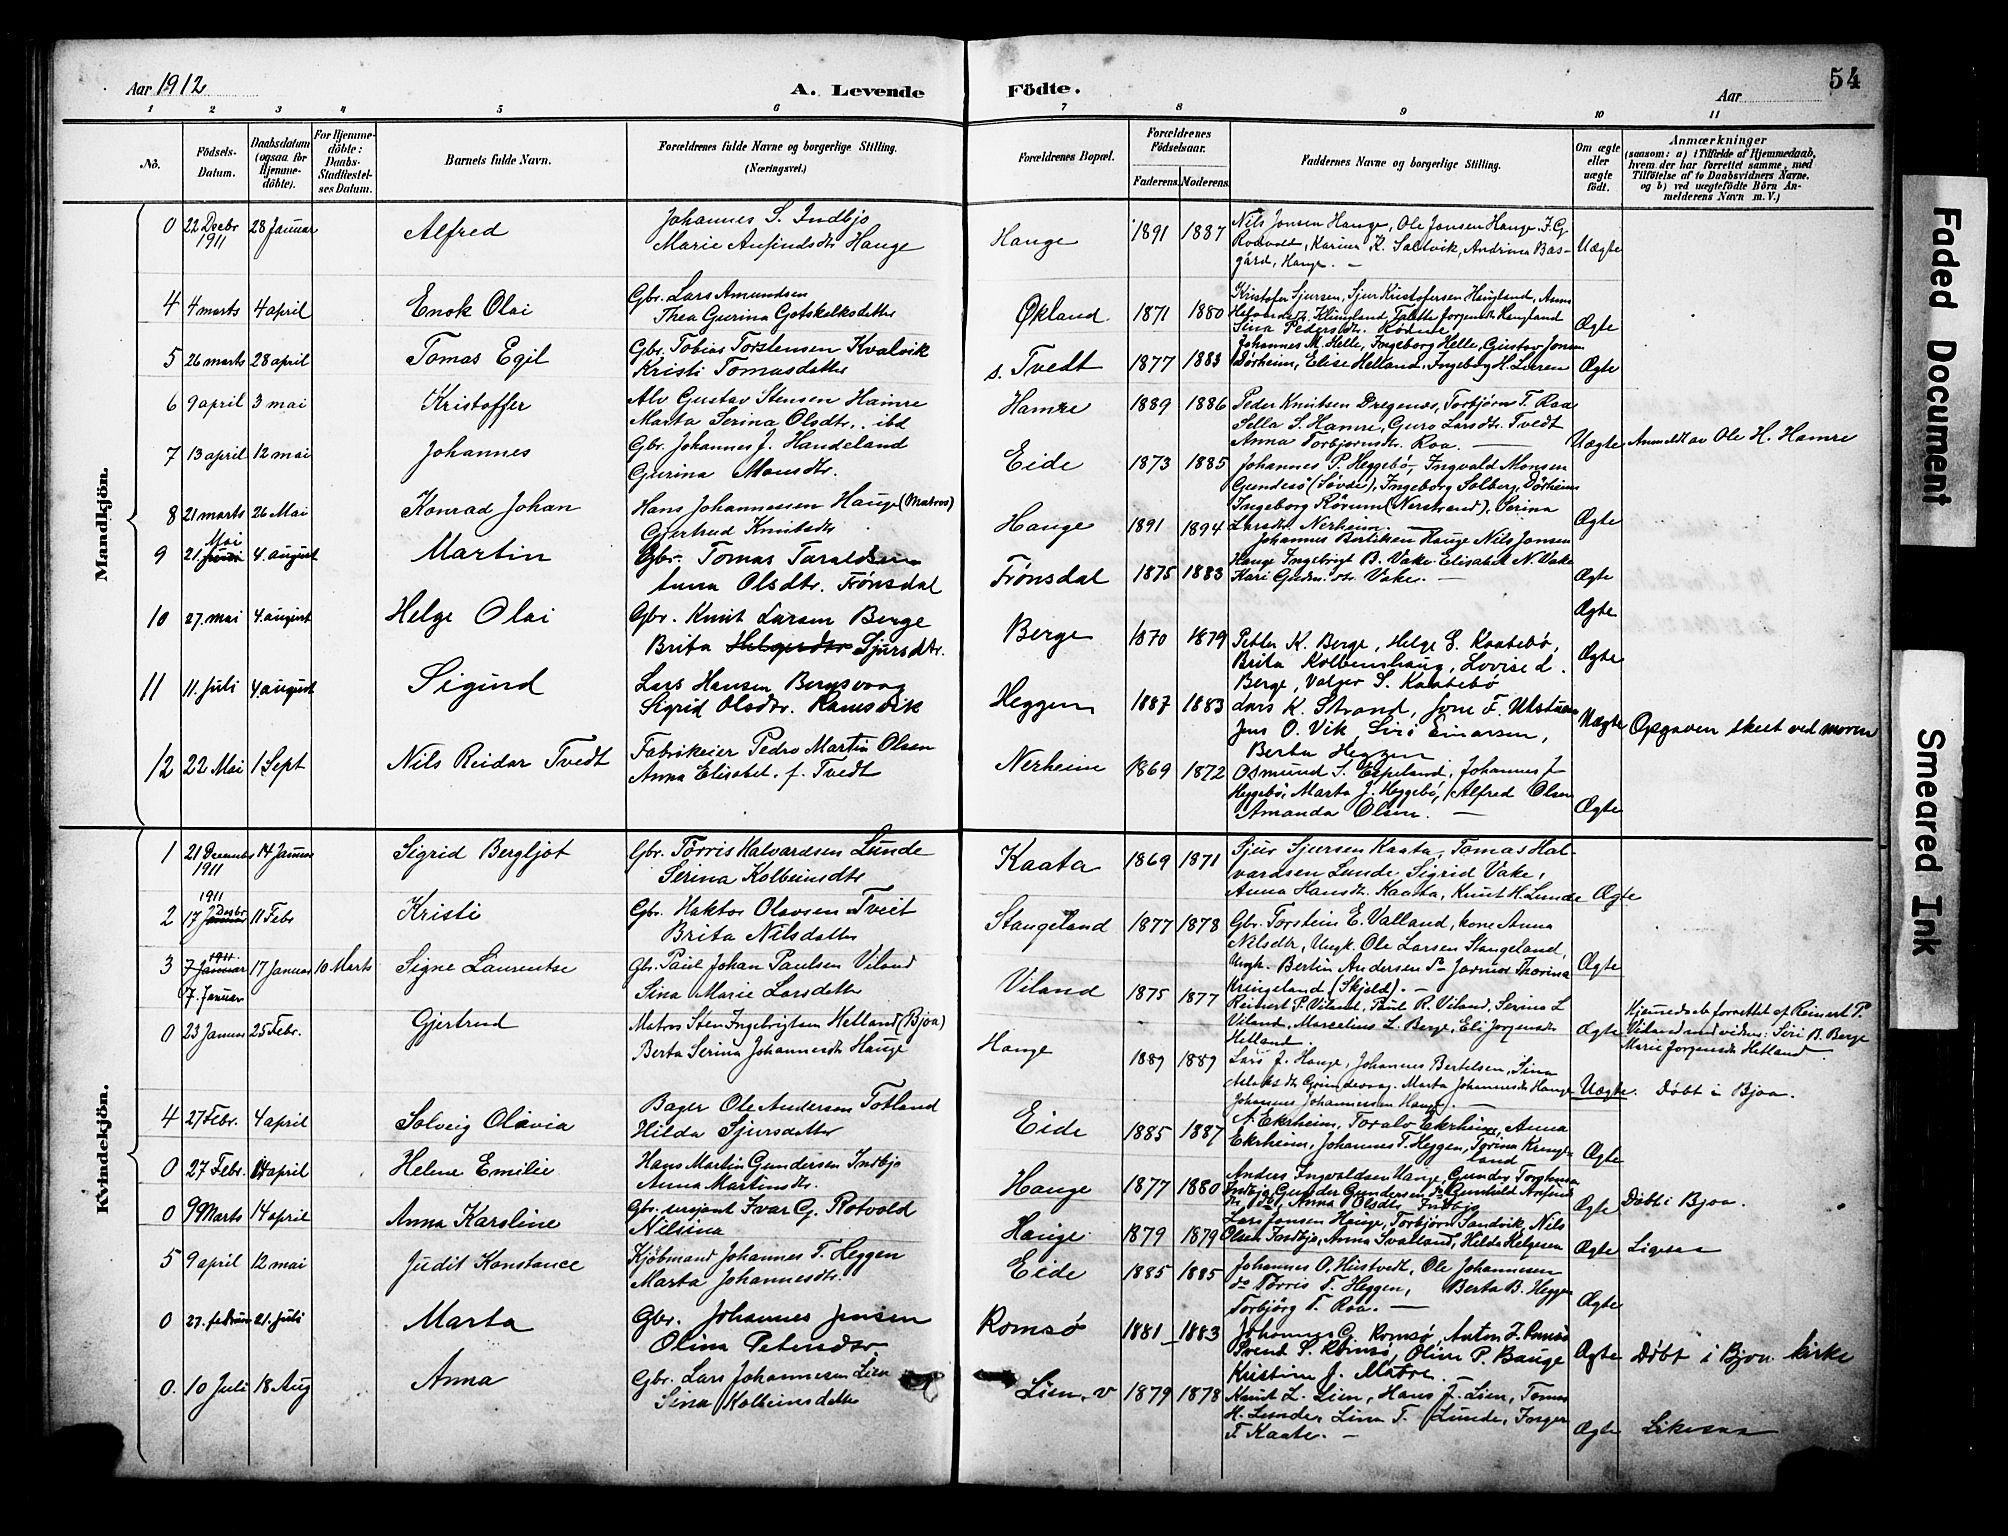 Aar 1912
A. Levende Födte.
Aar
54
1 2 3 4 5 6 7 8 9 10 11
No.
Födsels-Datum.
Daabsdatum (ogsaa for Hjemmedöbte).
For Hjemmedöbte: Daabs-Stadfæstelses Datum.
Barnets fulde Navn.
Forældrenes fulde Navne og borgerlige Stilling.
(Næringsvei.)
Forældrenes Bopæl.
Forældrenes Födselsaar.
Faderens. Moderens.
Faddernes Navne og borgerlige Stilling.
Om ægte eller uægte födt.
Anmærkninger
(saasom: a) i Tilfælde af Hjemmedaab, hvem der har forrettet samme, med Tilföielse af to Daabsvidners Navne. og b) ved uægtefödte Börn Anmelderens Navn m. V.)
Mandkjön.
0 22 Decbr 1911 28 Januar Alfred Johannes S. Indbjo
Marie Anfindsdtr Hauge Hauge 1891 1887 Nils Jonsen Hauge, Ole Jonsen Hauge, Karina K. Saltvik, Hauge. Uægte
4 4 marts 4 april Enok Olai Gbr. Lars Amundsen
Thea Gurina Gotskalksdatter Økland 1871 1880 Kristofer Sjursen, Sjur Kristofersen Haugland Ægte
5 26 marts 28 april Tomas Egil Gbr. Tobias Torstensen Kvalvik
Kristi Tomasdatter s. Tvedt 1877 1883 Johannes M. Helle, Ingeborg Helle, Gustav Jonsen Dørheim, Elise Helland, Ingeborg H. Ægte
6 9 april 3 mai Kristoffer Alv Gustav Stensen Hamre
Marta Serina Olsdtr. ibd Hamre 1889 1886 Peder Knutsen Dregenæs, Torbjørn T. Roa
Sella S. Hamre, Guro Larsdtr. Tvedt
Anna Torbjornsdtr. Roa. Uægte Anmeldt av Ole H. Hamre
7 13 april 12 mai Johannes Gbr. Johannes J. Handeland
Gurina Monsdtr. Eide 1873 1885 Johannes P. Heggebø, Ingvald Monsen
(Søvde), Ingeborg Solberg, Dørheim
8 21 marts 26 Mai Konrad Johan Hans Johannessen Hauge (Matros)
Gjertrud Knutsdtr Hauge 1891 1894 Ingeborg Rörum (Nerstrand), Serina
Larsdtr. Nerheim. Ægte
9 21. Mai 4. august Martin Gbr. Tomas Taraldsen
Anna Olsdtr. Frönsdal Frönsdal 1875 1883 Johannes Bertilsen Hauge Nils Jonsen
Hauge Ingebrigt B. Vake Elisabet N. Vake
Kari Vake. Ægte
10 27. mai 4. august Helge Olai Gbr. Knut Larsen Berge
Brita Sjursdtr. Berge 1870 1879 Petter K. Berge, Helge E. Kaatebö,
Brita Kolbenshaug, Lovise d.
Berge, Valger S. Kaatebö Ægte Ægte
11 11. Juli 4. august Sigurd Lars Hansen Bergsvaag
Sigrid Olsdtr. Ramsvik Heggen 1887 1883 Lars K. Strand, Jone F.
Jens O. Vik, Siri Einarsen,
Berta Heggen Uægte Opgaven skeet ved moren
12 22 Mai 1 Sept Nils Reidar Tvedt Fabrikeier Pedro Martin Olsen
Anna Elisabet. f. Tvedt Nerheim 1869 1872 Osmund S. Espeland, Johannes J
Heggebö, Marta J. Heggebö, Alfred Olsen
Amanda Olsen. Ægte
Kvindekjön.
1 21 December 1911 14 Januar Sigrid Bergljot Gbr. Torris Halvardsen Lunde
Serina Kolbeinsdtr Kaata 1869 1871 Sjur Sjursen Kaata, Tomas Hal-
vardsen Lunde Sigrid Vake,
Anna Hansdtr. Kaata, Knut H. Lunde Ægte
2 17 Decbr 1911 11 Febr Kristi Gbr. Haktor Olavsen Tveit
Brita Nilsdatter Stangeland 1877 1878 Gbr. Torstein E. Valland, kone Anna
Nilsdtr, Ungk. Ole Larsen Stangeland,
Ungk. Bertin Andersen Thorina
Kringeland (Skjold). Ægte
3 7 Januar 1911 7. Januar 17 Januar 10 Marts Signe Laurentse Gbr. Paul Johan Paulsen Viland
Sina Marie Larsdatter Viland 1875 1877 Reinert P. Viland, Paul R. Viland, Serina L
Viland, Marselius L. Berge, Eli Jorgensdtr
Hetland. Ægte Hjemedaab forrettet af Reinert P.
Viland med vidner: Siri B. Berge
Marie Jorgensdtr Hetland.
0 23 Januar 25 Febr. Gjertrud Matros Sten Ingebrigtsen Hetland (Bjoa)
Berta Serina Johannesdtr Hauge Hauge 1889 1889 Lars J. Hauge, Johannes Bertelsen, Sina
Marta Johannesdtr Hauge
Johannes Johannessen Hauge. Uægte. Döbt i Bjoa.
4 27 Febr. 4 april Solveig Olavia Bager Ole Andersen Totland
Hilda Sjursdatter Eide 1885 1887 A. Ekrheim, Toralv Ekrheim, Anna
Ekrheim, Johannes T. Heggen, Torina Kringe-
land Ægte
0 27 Febr. 14 april Helene Emilie Hans Martin Gundersen Indbjo
Anna Martinsdtr. Hauge 1877 1880 Anders Ingvaldsen Hauge Indbjo Gunder Gundersen Gunhild Anna Olsdtr Indbjo Ægte Döbt i Bjoa.
0 9 Marts 14 april Anna Karoline Gbr. sersjant Ivar G. Rotvold
Nilsina Hauge 1879 1879 Lars Jonsen Hauge, Torbjörn Sandvik, Nils
Olsen Indbjo, Anna Svalland, Hilda Helgesen Ægte Ligesaa
5 9 april 12 mai Judit Konstance Kjöbmand Johannes T. Heggen
Marta Johannesdtr. Eide 1885 1885 Johannes O. Hustvedt, Ole Johannesen
do Torris T. Heggen, Berta B. Heggen
Torbjörg T. Roa. Ægte
0 27. februar 21. juli Marta Gbr. Johannes Jensen
Olina Petersdtr Romsö 1881 1883 Johannes G. Romsö, Anton J. Romsö
Svend S. Romsö, Olive P. Bauge
Kristine J. Matre. Ægte Döbt i Bjoa kirke
0. 10 Juli 18 Aug Anna Gbr. Lars Johannesen Lien
Sina Kolbeinsdatter Lien. v 1879 1878 Knut L. Lien, Hans J. Lien, Tomas
H. Lunde, Lina T. Lunde, Inger
T. Kaate. Ægte Likesaa
Faded Document
Smeared Ink